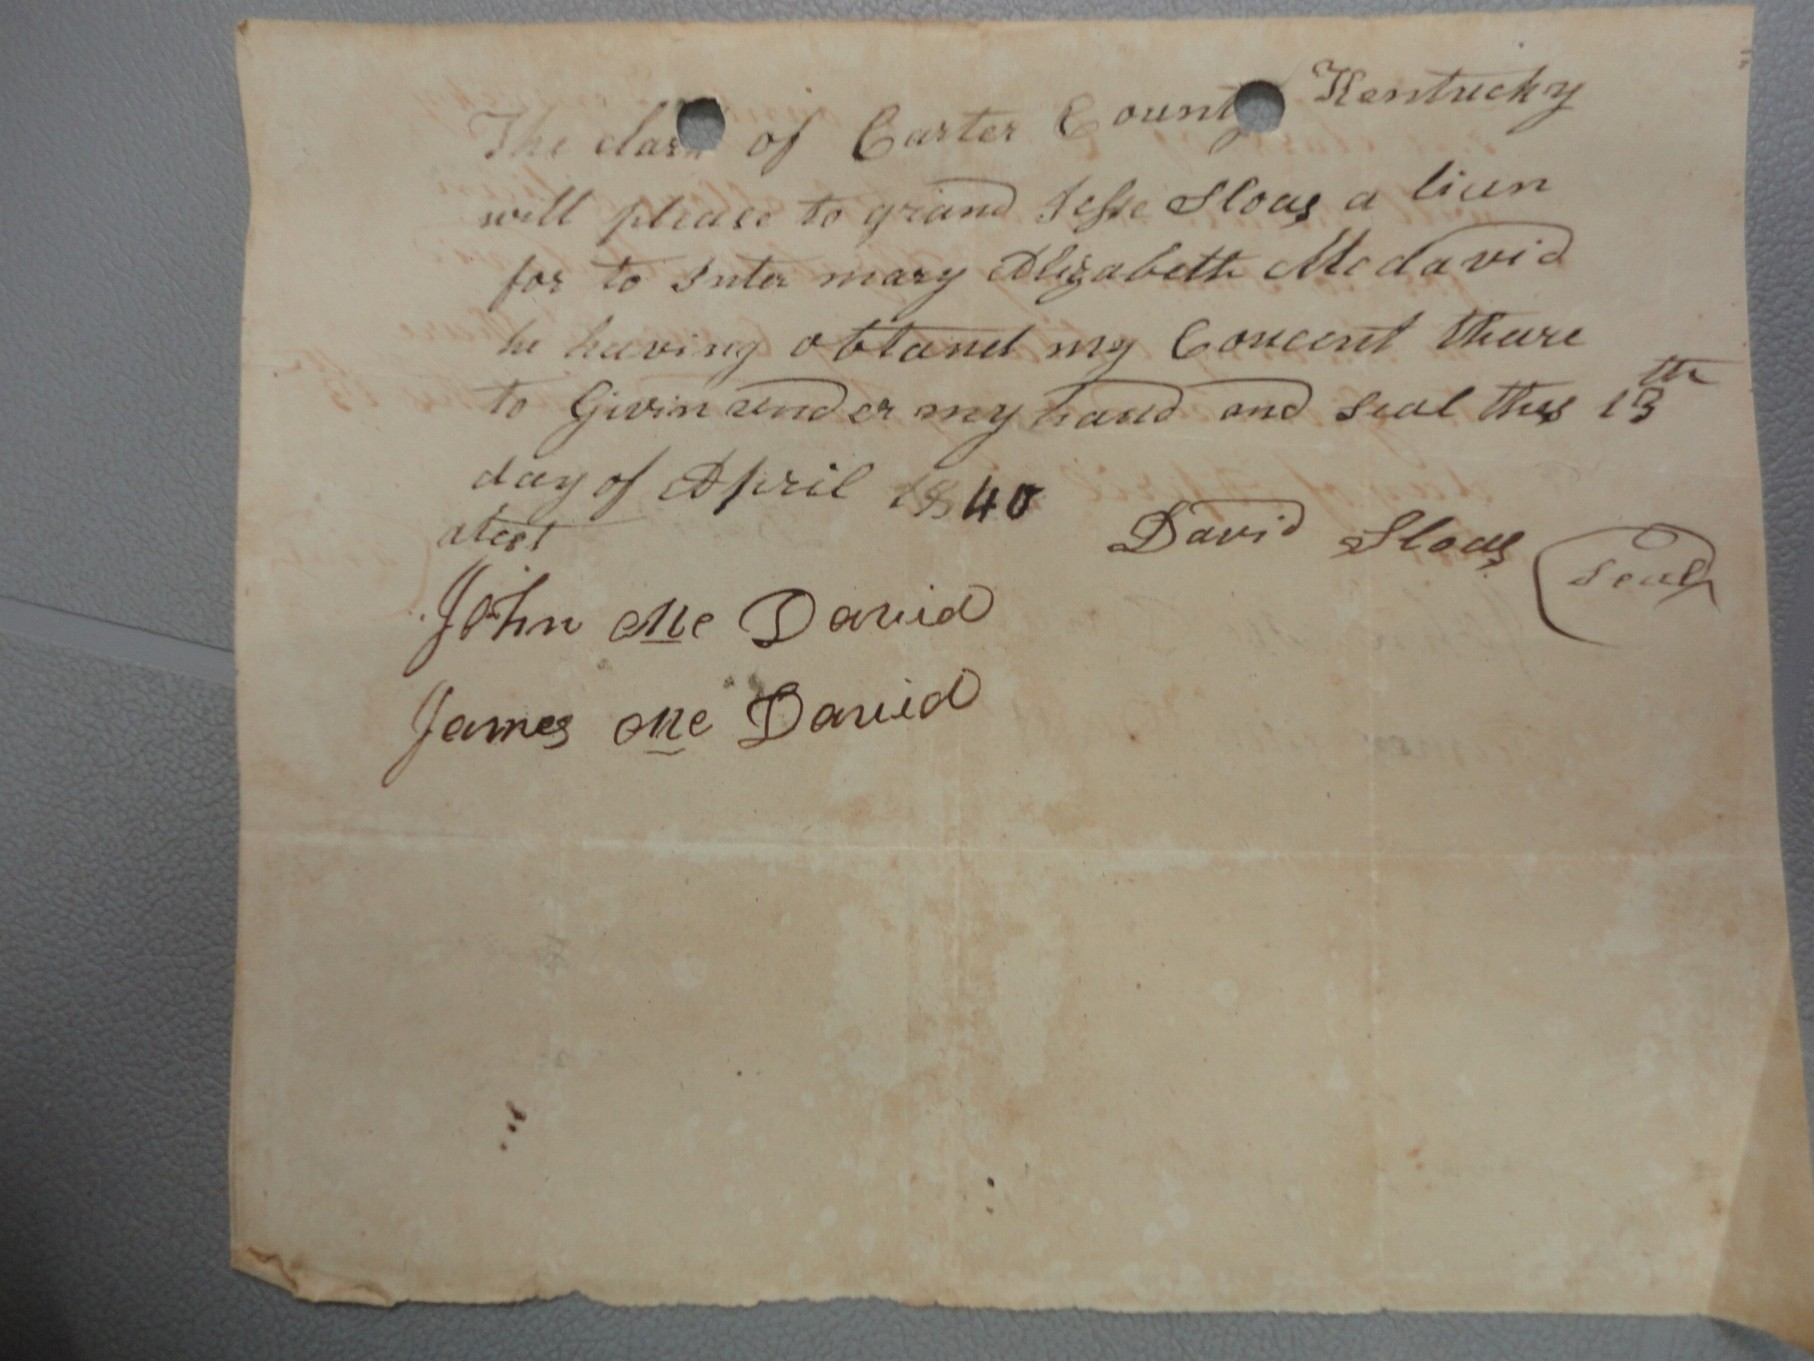 The clark of Carter County Kentucky
will please to grand Jesse Sloas a licen
for to Inter mary Elizabeth Mcdavid
he having obtand my Concent thare
to Givin under my hand and seal this 13th
day of April 1840
atest
David Sloas seal
John Mc David
James Mc David